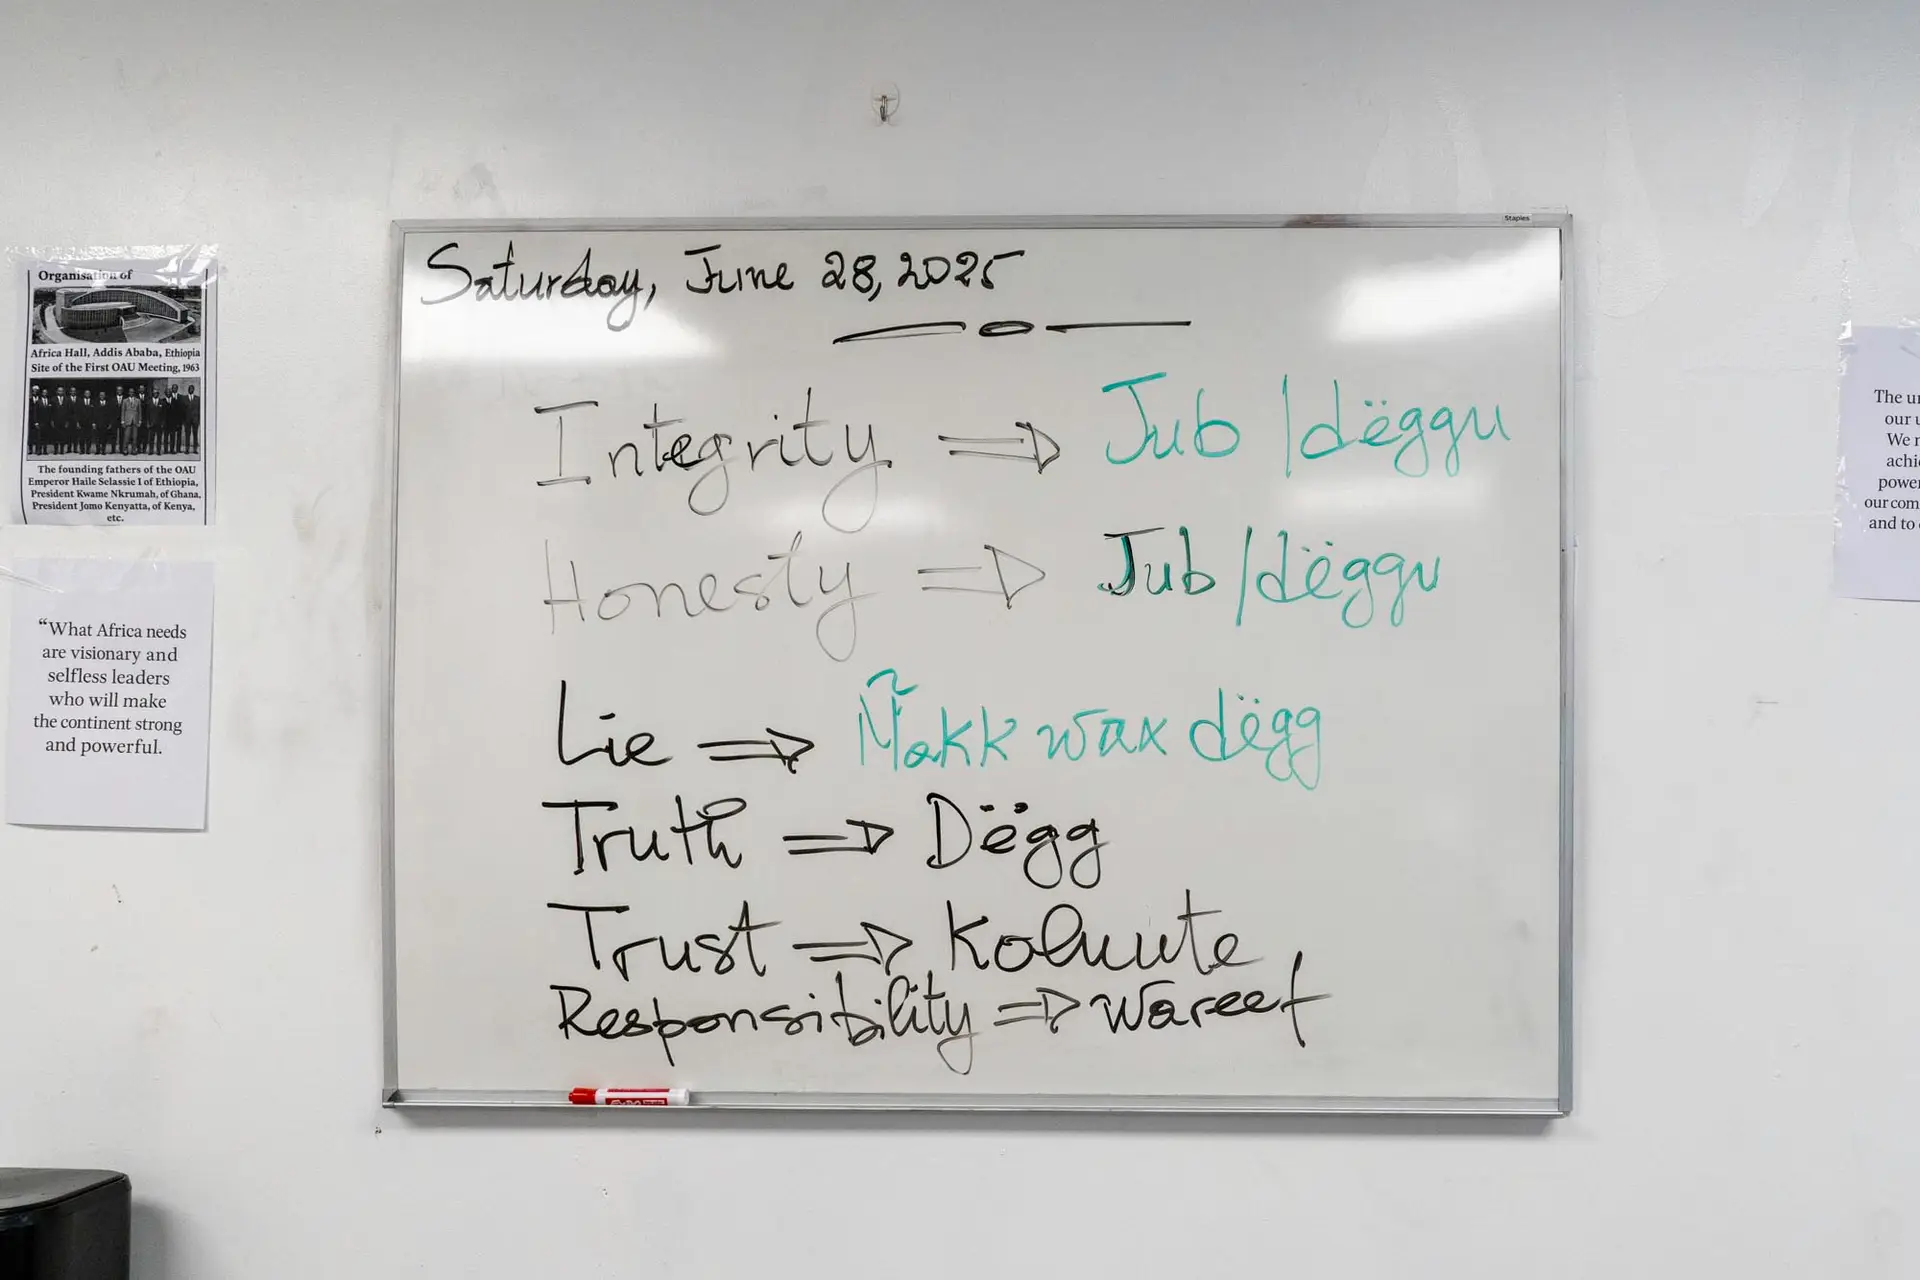 Staples
Saturday, June 28, 2025
Integrity ⇒ Jub / dëggu
Honesty ⇒ Jub / dëggu
Lie ⇒ Ñakk wax dëgg
Truth ⇒ Dëgg
Trust ⇒ Koluute
Responsibility ⇒ Wareef
Organisation of
Africa Hall, Addis Ababa, Ethiopia
Site of the First OAU Meeting, 1963
The founding fathers of the OAU
Emperor Haile Selassie I of Ethiopia,
President Kwame Nkrumah, of Ghana,
President Jomo Kenyatta, of Kenya,
etc.
“What Africa needs
are visionary and
selfless leaders
who will make
the continent strong
and powerful.
The
our
We
our
and to